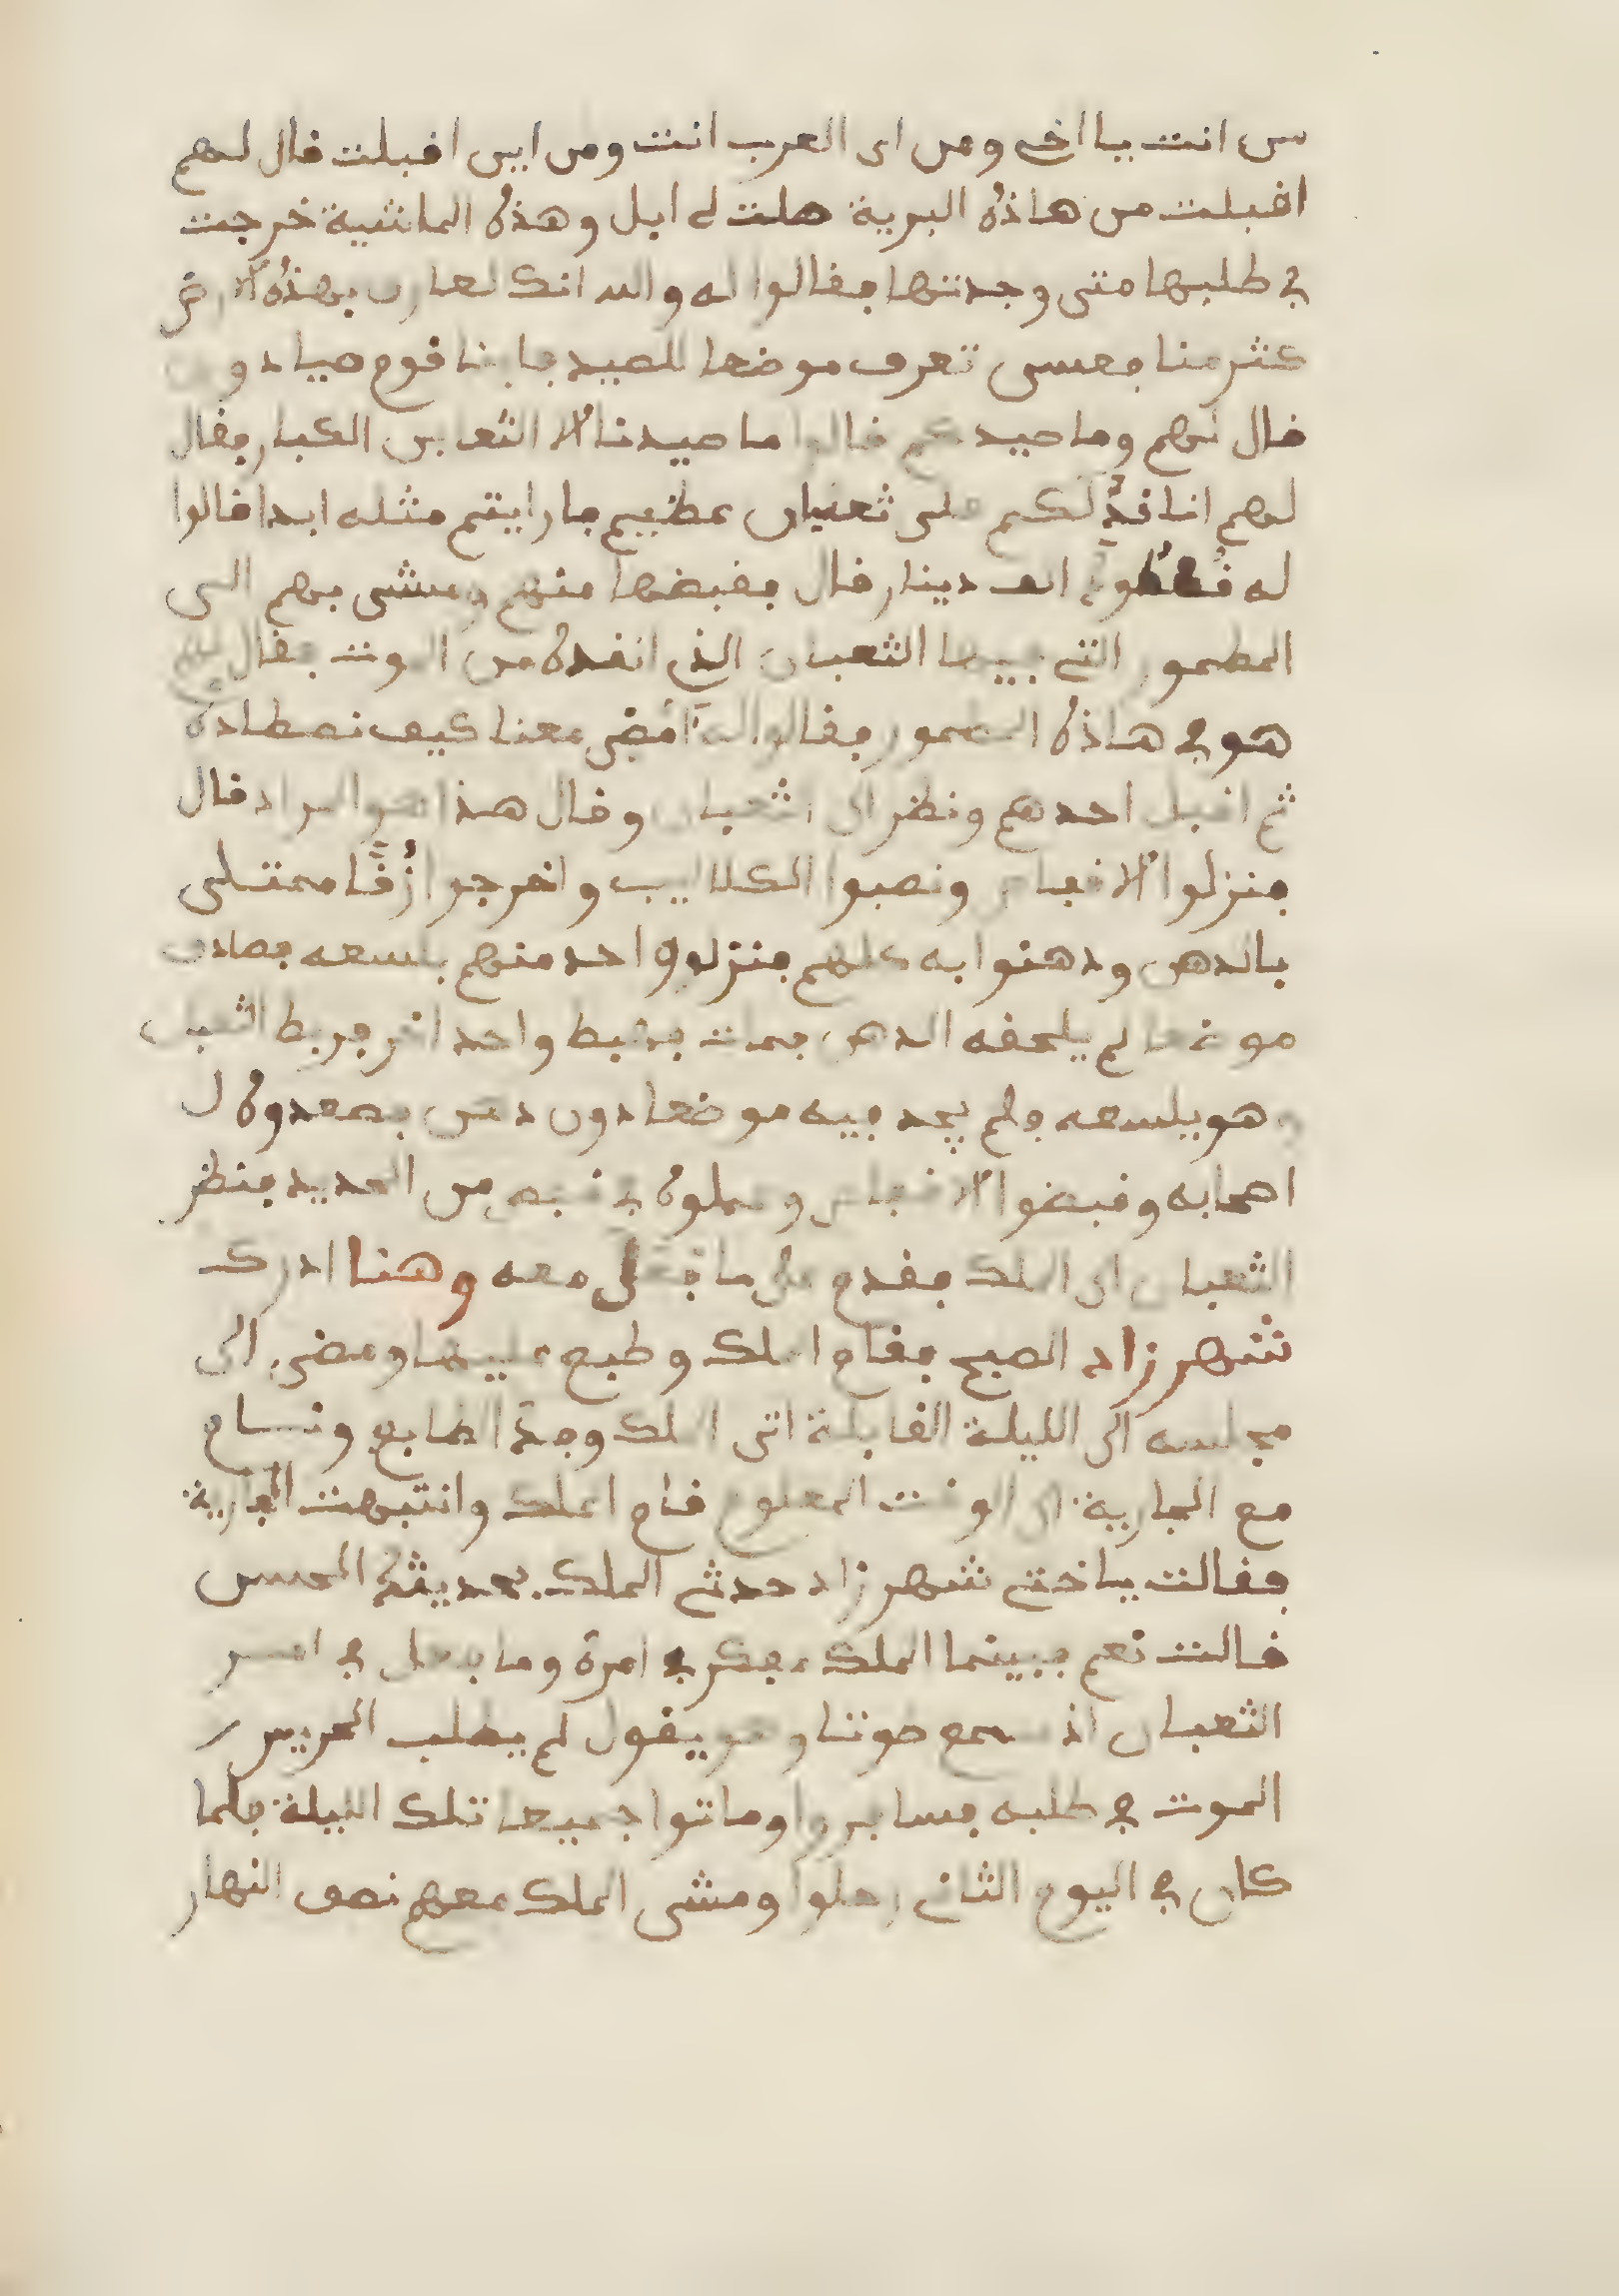 من انت يا اخي ومن اى العرب انت ومن اين اقبلت قال لهم
اقبلت من هاذه البرية ضلت لى ابل وهذه الماشية خرجت
في طلبها متى وجدتها فقالوا له والله انك لعارف بهذه الارض
كثر منا فعسى تعرف موضعا للصيد فاننا قوم صيادون
قال لهم وما صيدكم قالوا ما صيدنا الا الثعابين الكبار فقال
لهم انا ندلكم على ثعبان عظيم ما رايتم مثله ابدا قالوا
له الف دينار قال فقبضها منهم ومشى بهم الى
المطمور التي فيها الثعبان الذي انقده من الموت فقال لهم
هو في هاذه المطمور فقالوا له امض معنا كيف نصطاده
ثم اقبل احدهم ونظر الى الثعبان وقال هذا هو المراد قال
فنزلوا الاقفاص ونصبوا الكلاليب واخرجوا زقا ممتلى
بالدهن ودهنوا به كلهم فنزل واحد منهم فلسعه فصادف
موضعا لم يلحقه الدهن فمات فهبط واحد اخر فربط الثعبان
وهو يلسعه ولم يجد فيه موضعا دون دهن فصعدوه ل
اصحابه وقبضوا الاقفاص وعملوه في قفص من الحديد فنظر
الثعبان الى الملك فقدم على ما فعل معه وهنا ادرك
شهرزاد الصبح فقام الملك وطبع عليهما ومضى الى
مجلسه الى الليلة القابلة اتى الملك وفك الطابع ونام
مع الجارية الى الوقت المعلوم قام الملك وانتبهت الجارية
فقالت يا ختي شهرزاد حدثي الملك بحديثك الحسن
قالت نعم فبينما الملك يفكر في امره وما يفعل في امر
الثعبان اذ سمع صوتا وهو يقول لم يطلب الحريص
الموت في طلبه فسافروا وماتوا جميعا تلك الليلة فلما
كان في اليوم الثاني رحلوا ومشى الملك معهم نصف النهار